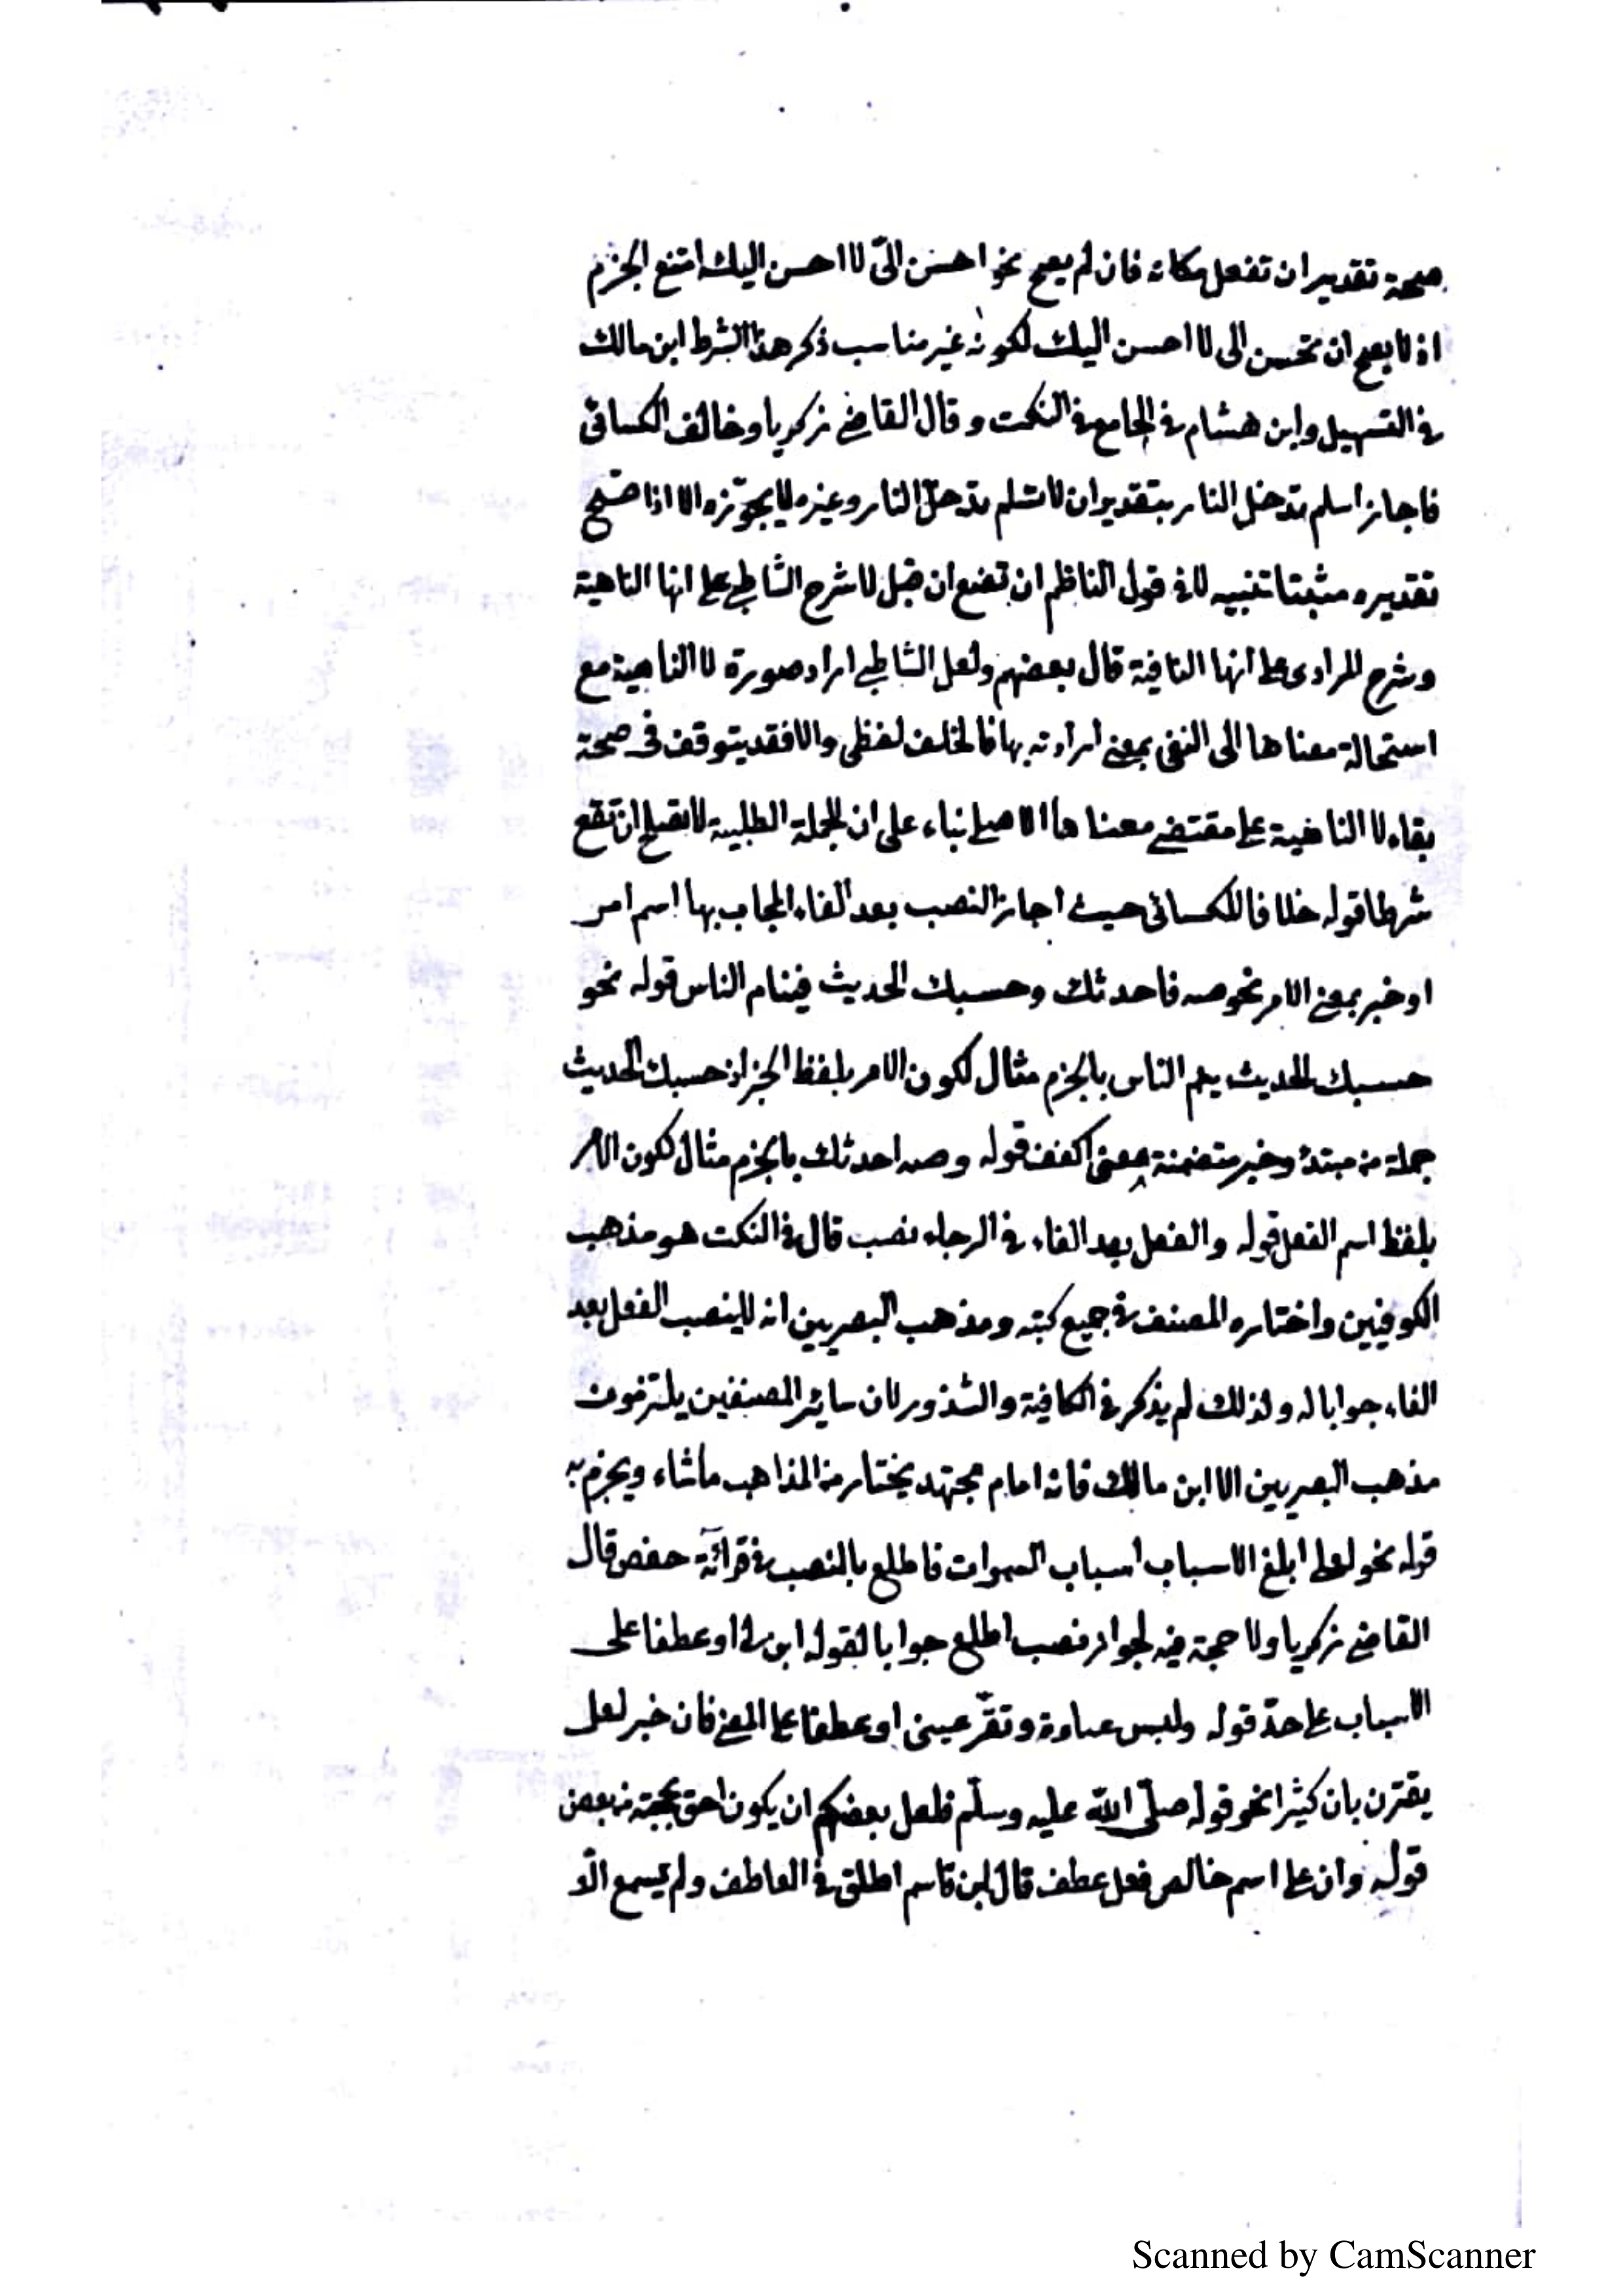 صحة تقدير ان تفعل مكانه فان لم يصح نحو احسن الىّ لا احسن اليك امتنع الجزم
اذ لا يصح ان تحسن الى لا احسن اليك لكونه غير مناسب ذكر هذا الشرط ابن مالك
فى التسهيل وابن هشام فى الجامع فى النكت وقال القاضى زكريا وخالف الكسائى
فاجاز اسلم تدخل النار بتقدير ان لا تسلم تدخل النار وغيره لا يجوّزه الا اذا صحّ
تقديره مثبتا تنبيه لا فى قول الناظم ان تضع ان قبل لا شرح الشاطبى على انها الناهية
وشرح المرادى على انها النافية قال بعضهم ولعل الشاطبى اراد صورة لا الناهية مع
استحالة معناها الى النفى بمعنى ارادته بها فالخلف لفظى والا فقد يتوقف فى صحة
بقاء لا الناهية على مقتضى معناها الاصلى بناء على ان الجملة الطلبية لا تصلح ان تقع
شرطا قوله خلافا للكسائى حيث اجاز النصب بعد الفاء المجاب بها اسم امر
او خبر بمعنى الامر نحو صه فاحدثك وحسبك الحديث فينام الناس قوله نحو
حسبك الحديث ينم الناس بالجزم مثال لكون الامر بلفظ الخبر اذ حسبك الحديث
جملة من مبتدئ وخبر متضمنة معنى اكفف قوله وصه احدثك بالجزم مثال لكون الامر
بلفظ اسم الفعل قوله والفعل بعد الفاء فى الرجاء نصب قال فى النكت هو مذهب
الكوفيين واختاره المصنف فى جميع كتبه ومذهب البصريين انه لا ينصب الفعل بعد
الفاء جوابا له ولذلك لم يذكر فى الكافية والشذور لان سائر المصنفين يلتزمون
مذهب البصريين الا ابن مالك فانه امام مجتهد يختار من المذاهب ما شاء ويجزم به
قوله نحو لعلى ابلغ الاسباب اسباب السموات فاطلع بالنصب فى قرائة حفص قال
القاضى زكريا ولا حجة فيه لجواز نصب اطلع جوابا لقوله ابن لى او عطفا على
الاسباب على حدّ قوله ولبس عباءة وتقرّ عينى او عطفا على المعنى فان خبر لعل
يقترن بان كثيرا نحو قوله صلّى الله عليه وسلّم فلعل بعضكم ان يكون احق بحجته من بعض
قوله وان على اسم خالص فعل عطف قال ابن قاسم اطلق فى العاطف ولم يسمع الّا
Scanned by CamScanner